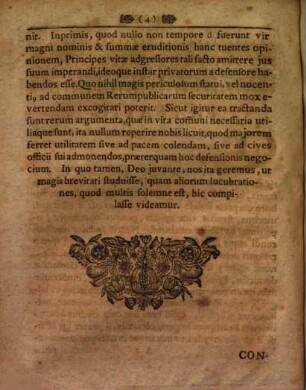 (4)
nit. Inprimis, quod nullo non tempore d. fuerunt vir
magni nominis & summæ eruditionis hanc tuentes opi-
nionem, Principes vitæ adgressores tali facto amittere jus
suum imperandi, ideoque instar privatorum a defensore ha-
bendos esse. Quo nihil magis periculosum statui, vel nocen-
ti9, ad communem Rerumpublicarum securitatem mox e-
vertendam excogitari poterit. Sicut igitur ea tractanda
sunt rerum argumenta, quæ in vita comuni necessaria uti-
liaque sunt, ita nullum reperire nobis licuit, quod majorem
ferret utilitatem sive ad pacem colendam, sive ad cives
officii sui admonendos, præterquam hoc defensionis nego-
cium. In quo tamen, Deo juvante, nos ita geremus, ut
magis brevitati studuisse, quam aliorum lucubratio-
nes, quod multis solemne est, hic compi-
lasse videamur.
CON-